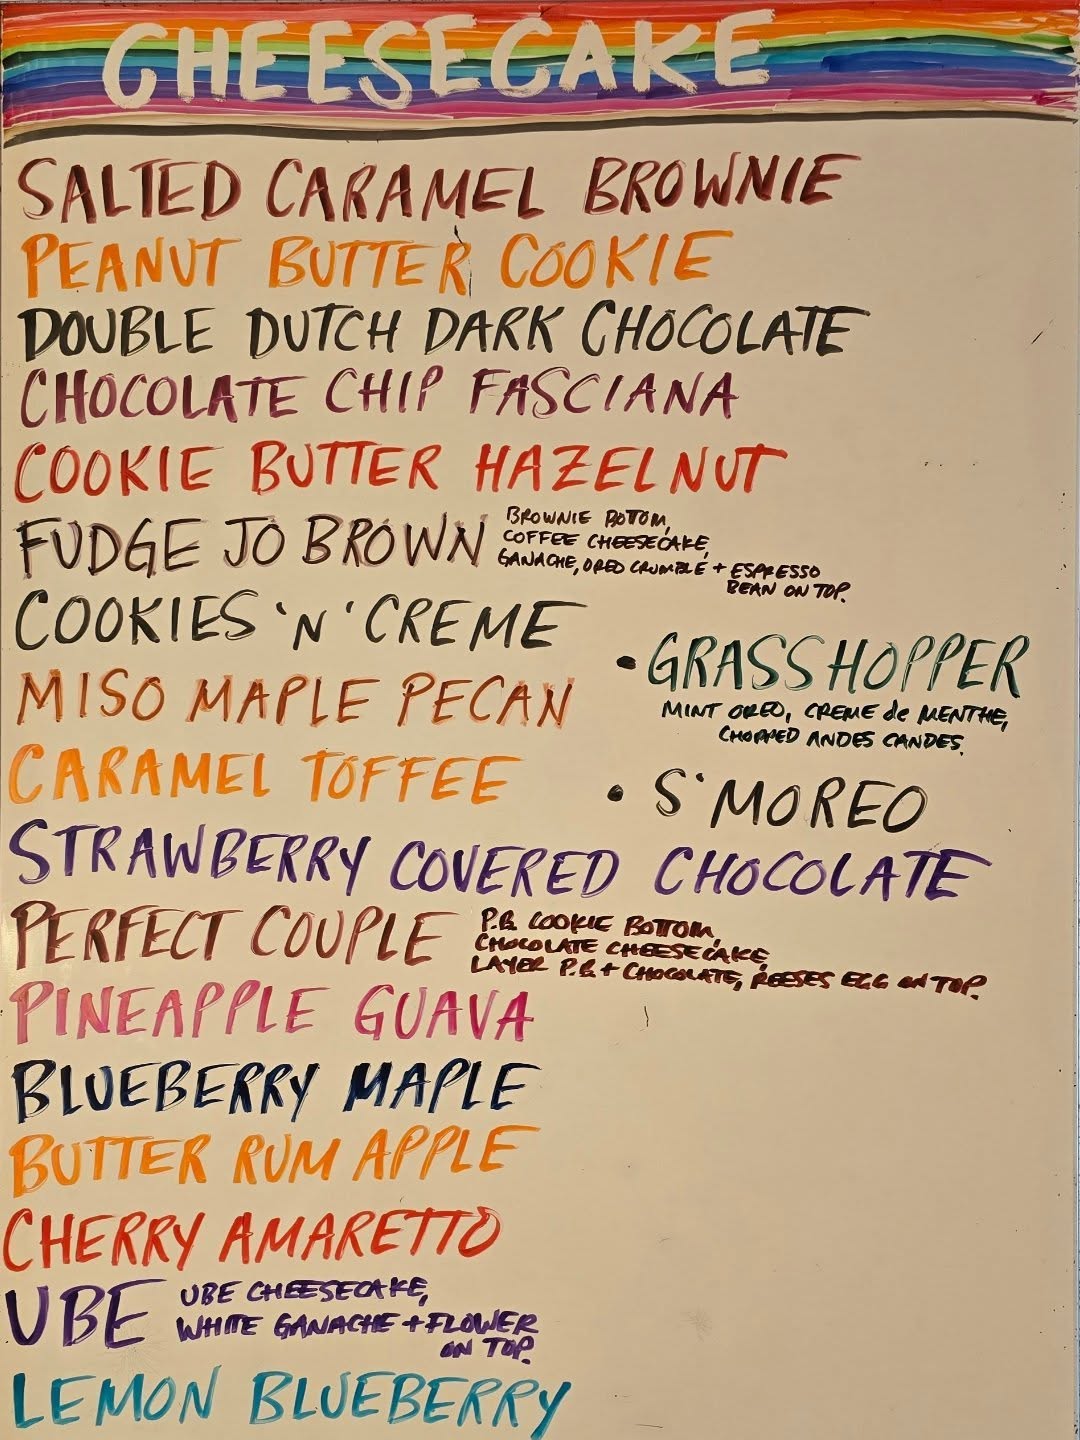 CHEESECAKE
SALTED CARAMEL BROWNIE
PEANUT BUTTER COOKIE
DOUBLE DUTCH DARK CHOCOLATE
CHOCOLATE CHIP FASCIANA
COOKIE BUTTER HAZELNUT
FUDGE JO BROWN
BROWNIE BOTTOM,
COFFEE CHEESECAKE,
GANACHE, OREO CRUMBLE + ESPRESSO
BEAN ON TOP.
COOKIES 'N' CREME
MISO MAPLE PECAN
CARAMEL TOFFEE
• GRASSHOPPER
MINT OREO, CREME de MENTHE,
CHOPPED ANDES CANDES.
• S'MOREO
STRAWBERRY COVERED CHOCOLATE
PERFECT COUPLE
P.B. COOKIE BOTTOM,
CHOCOLATE CHEESECAKE,
LAYER P.B. + CHOCOLATE, REESES EGG ON TOP.
PINEAPPLE GUAVA
BLUEBERRY MAPLE
BUTTER RUM APPLE
CHERRY AMARETTO
UBE
UBE CHEESECAKE,
WHITE GANACHE + FLOWER
ON TOP.
LEMON BLUEBERRY